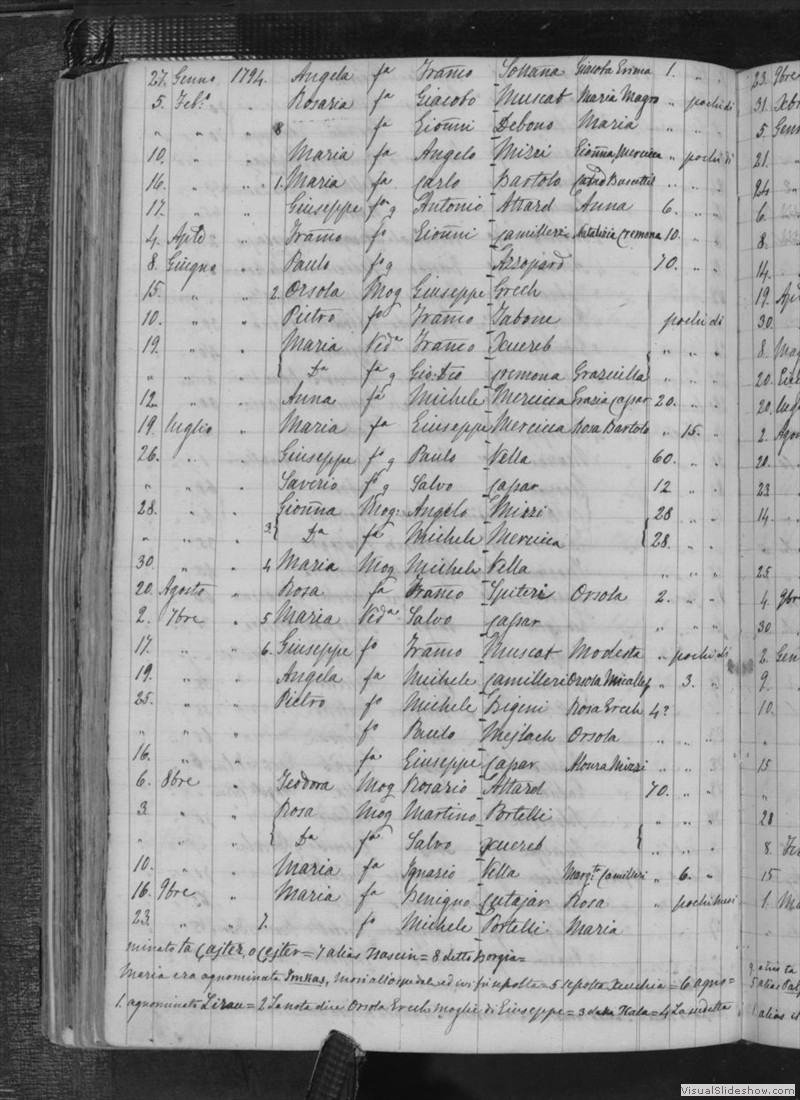 27. Genno 1794. Angela fa Franco Sohana Giacoba Grima 1. " "
5. Feb.o " Rosaria fa Giacobo Muscat Maria Magro " pochi di
" " " 8 fa Gionni Debono Maria " " "
10. " " Maria fa Angelo Mizzi Gionna Mercieca " pochi di
16. " " 1. Maria fa Carlo Bartolo " " "
17. " " Giuseppe fo g Antonio Attard Anna 6. " "
4. Aple " Franco fo Gionni Camilleri Natalizia Cremona 10. " "
8. Giugno " Paulo fo g Azzopard 70. " "
15. " " 2. Orsola Mog Giuseppe Grech
10. " " Pietro fo Franco Tabone pochi di
19. " " Maria Veda Franco Xuereb { " " "
" " " { Da fa g Gio:Dio Cremona Graziulla { " " "
12 " " Anna fa Michele Mercieca Grazia Caspar 20. " "
19. luglio " Maria fa Giuseppe Mercieca Rosa Bartolo " 15. "
26. " " Giuseppe fo g Paulo Vella 60. " "
" " " Saverio fo g Salvo Caspar 12 " "
28. " " Gionna Mog: Angelo Mizzi 28 " "
" " " 3. { Da fa Michele Mercieca { 28. " "
30. " " 4 Maria Mog Michele Vella " " "
20. Agosto " Rosa fa Franco Spiteri Orsola 2. " "
2. 7bre " 5 Maria Veda Salvo Caspar " " "
17. " " 6. Giuseppe fo Franco Muscat Modesta " pochi di
19. " " Angela fa Michele Camilleri Orsola Micallef " 3. "
25. " " Pietro fo Michele Bigeni Rosa Grech 4?
" " " fo Paulo Mejlach Orsola " " "
16. " " fa Giuseppe Caspar Mizzi " " "
6. 8bre " Teodora Mog Rosario Attard 70. " "
3. " " Rosa Mog Martino Portelli
" " " { Da fa Salvo Xuereb { " " "
10. " " Maria fa Ignazio Vella Marg.ta Camilleri " 6. "
16. 9bre " Maria fa Benigno Cutajar Rosa " pochi mesi
23. " " 7. fo Michele Portelli Maria
minata ta Caster, o Cester = 7 alias Nascin = 8 detto Borgia =
Maria era agnominata mori all'ospedale ed ivi fu sepolta = 5 sepolta Xeuchia = 6 agno =
1. agnominato = 2 La nota dice Orsola Grech moglie di Giuseppe = 3 = 4 La sudetta
23. 9bre
31. Xbre
5 Genn
21. "
24 "
6. "
8. "
14. "
19.
30.
8.
20.
20.
2. Agos
20.
23
14.
"
25
4. 9bre
30
2. Gen
9.
10.
"
15
"
28
8.
15
1.
9. alias ta
5 alias
1 alias
VisualSlideshow.com